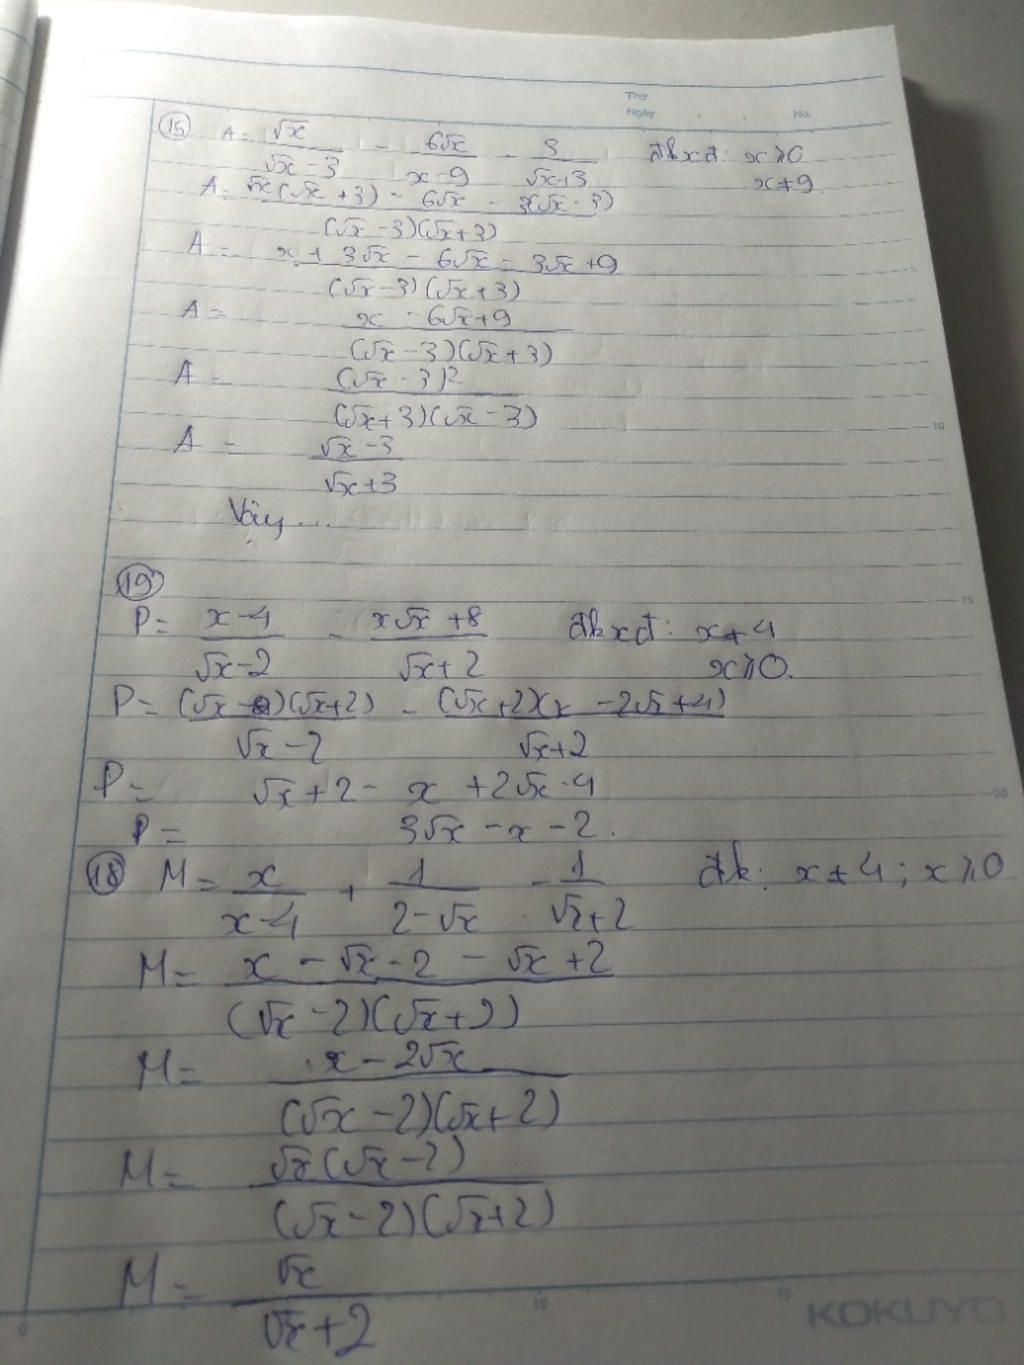 Thứ
Ngày . . No.
15 A = √x/(√x - 3) - 6√x/(x - 9) - 3/(√x + 3) đkxđ: x ≥ 0
x ≠ 9
A = (√x(√x + 3) - 6√x - 3(√x - 3))/((√x - 3)(√x + 3))
A = (x + 3√x - 6√x - 3√x + 9)/((√x - 3)(√x + 3))
A = (x - 6√x + 9)/((√x - 3)(√x + 3))
A = (√x - 3)²/((√x + 3)(√x - 3))
A = (√x - 3)/(√x + 3)
Vậy...
19
P = (x - 4)/(√x - 2) - (x√x + 8)/(√x + 2) đkxđ: x ≠ 4
x ≥ 0.
P = (√x - 2)(√x + 2)/(√x - 2) - (√x + 2)(x - 2√x + 4)/(√x + 2)
P = √x + 2 - x + 2√x - 4
P = 3√x - x - 2.
18 M = x/(x - 4) + 1/(2 - √x) - 1/(√x + 2) đk: x ≠ 4; x ≥ 0
M = (x - √x - 2 - √x + 2)/((√x - 2)(√x + 2))
M = (x - 2√x)/((√x - 2)(√x + 2))
M = √x(√x - 2)/((√x - 2)(√x + 2))
M = √x/(√x + 2)
5
10
15
20
0 10 15 KOKUYO